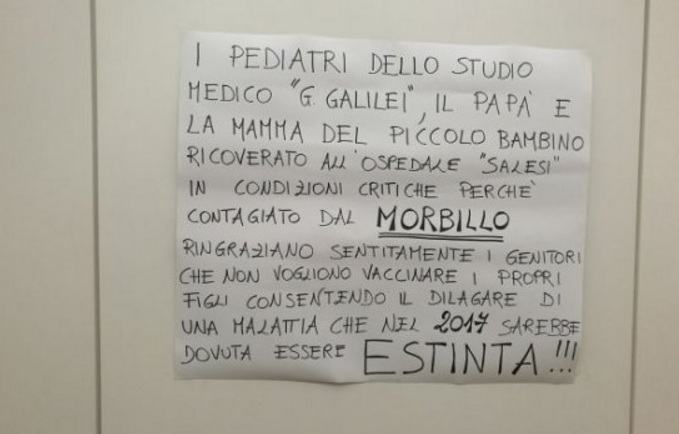 I PEDIATRI DELLO STUDIO
MEDICO "G. GALILEI", IL PAPÀ E
LA MAMMA DEL PICCOLO BAMBINO
RICOVERATO ALL'OSPEDALE "SALESI"
IN CONDIZIONI CRITICHE PERCHÈ
CONTAGIATO DAL MORBILLO
RINGRAZIANO SENTITAMENTE I GENITORI
CHE NON VOGLIONO VACCINARE I PROPRI
FIGLI CONSENTENDO IL DILAGARE DI
UNA MALATTIA CHE NEL 2017 SAREBBE
DOVUTA ESSERE ESTINTA!!!